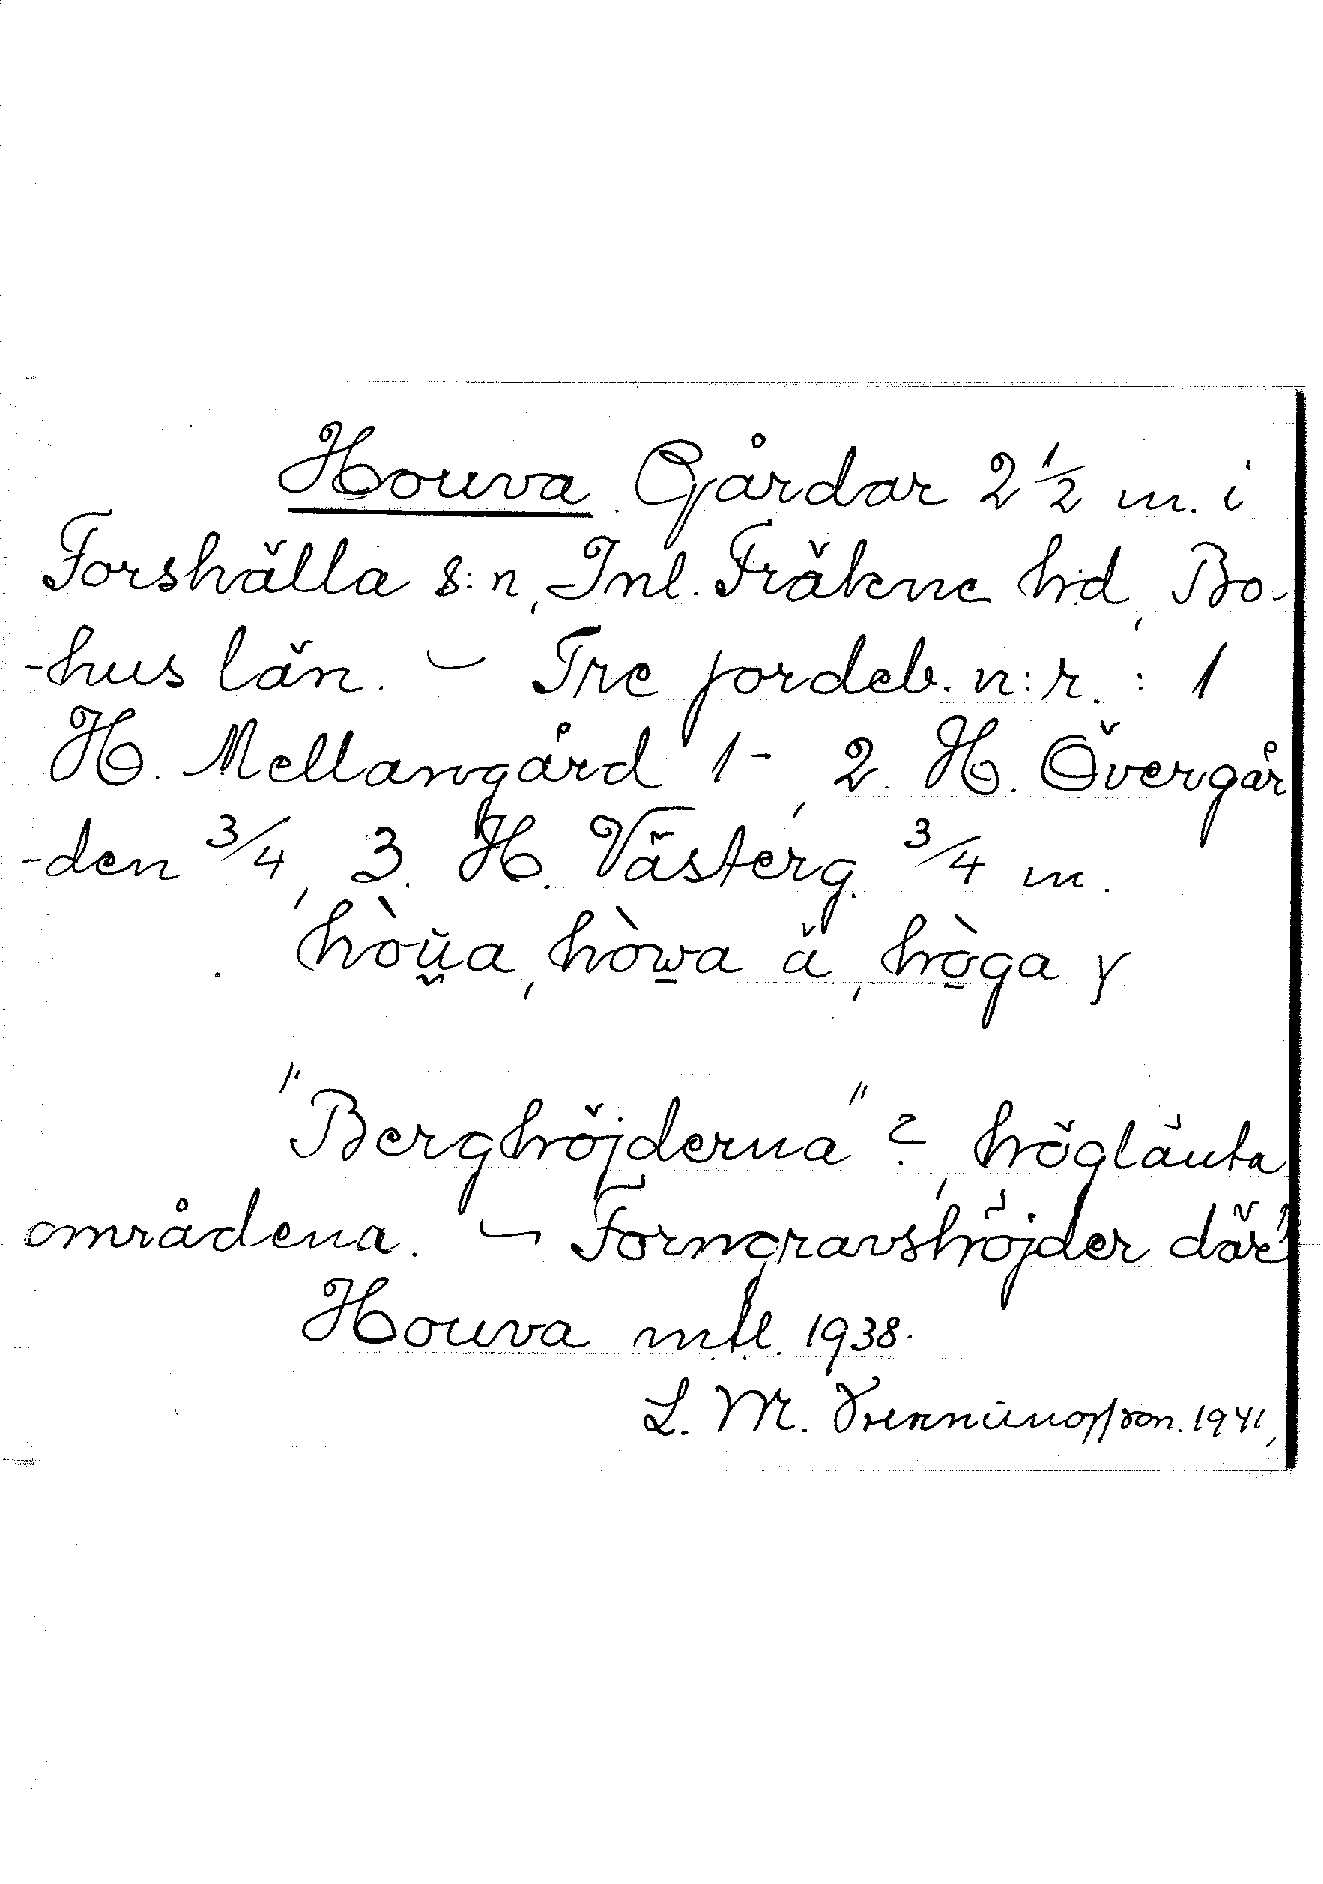 Houva Gårdar 2 1/2 m. i
Forshälla s:n, Inl. Fräkne h:d, Bo-
-hus län. — Tre jordeb. n:r. : 1
H. Mellangård 1-, 2. H. Övergår
-den 3/4, 3. H. Västerg. 3/4 m.
hòu̯a, hòwa ä, hò̱ga y
"Berghöjderna"?, höglänta
områdena. — Forngravshöjder där?
Houva mtl. 1938.
L. M. 1941,